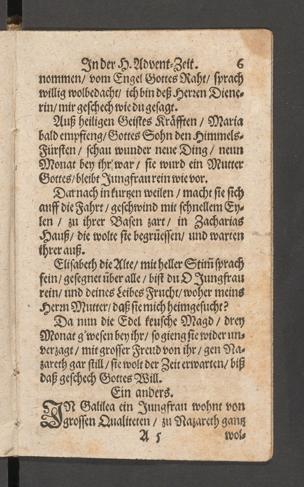 In der H. Advent-Zeit. 6
nommen/ vom Engel Gottes Raht/ sprach
willig wolbedacht/ ich bin deß Herren Diene-
rin/ mir geschech wie du gesagt.
Auß heiligen Geistes Kräfften/ Maria
bald empfieng/ Gottes Sohn den Himmels-
Fürsten/ schau wunder neue Ding/ neun
Monat bey ihr war/ sie wurd ein Mutter
Gottes/ bleibt Jungfrau rein wie vor.
Darnach in kurtzen weilen/ macht sie sich
auff die Fahrt/ geschwind mit schnellem Ey-
len/ zu ihrer Basen zart/ in Zacharias
Hauß/ die wolte sie begrüessen/ und warten
ihrer auß.
Elisabeth die Alte/ mit heller Stim̃ sprach
fein/ gesegnet über alle/ bist du O Jungfrau
rein/ und deines Leibes Frucht/ woher meins
Herrn Mutter/ daß sie mich heimgesucht?
Da nun die Edel keusche Magd/ drey
Monat g'wesen bey ihr/ so gieng sie wider un-
verzagt/ mit grosser Freud von ihr/ gen Na-
zareth gar still/ sie wolt der Zeit erwarten/ biß
daß geschech Gottes Will.
Ein anders.
IN Galilea ein Jungfrau wohnt von
grossen Qualiteten/ zu Nazareth gantz
A 5 wol-